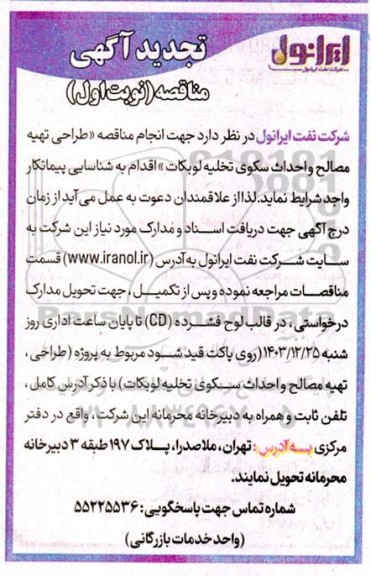 ایرانول
شرکت نفت ایرانول
تجدید آگهی
مناقصه (نوبت اول)
شرکت نفت ایرانول در نظر دارد جهت انجام مناقصه «طراحی تهیه
مصالح و احداث سکوی تخلیه لوبکات» اقدام به شناسایی پیمانکار
واجد شرایط نماید. لذا از علاقمندان دعوت به عمل می آید از زمان
درج آگهی جهت دریافت اسناد و مدارک مورد نیاز این شرکت به
سایت شرکت نفت ایرانول به آدرس (www.iranol.ir) قسمت
مناقصات مراجعه نموده و پس از تکمیل، جهت تحویل مدارک
درخواستی، در قالب لوح فشرده (CD) تا پایان ساعت اداری روز
شنبه ۱۴۰۳/۱۲/۲۵ (روی پاکت قید شود مربوط به پروژه (طراحی،
تهیه مصالح و احداث سکوی تخلیه لوبکات) با ذکر آدرس کامل،
تلفن ثابت و همراه به دبیرخانه محرمانه این شرکت، واقع در دفتر
مرکزی به آدرس: تهران، ملاصدرا، پلاک ۱۹۷ طبقه ۳ دبیرخانه
محرمانه تحویل نمایند.
شماره تماس جهت پاسخگویی: ۵۵۲۲۵۵۳۶
(واحد خدمات بازرگانی)
ParsNamadData